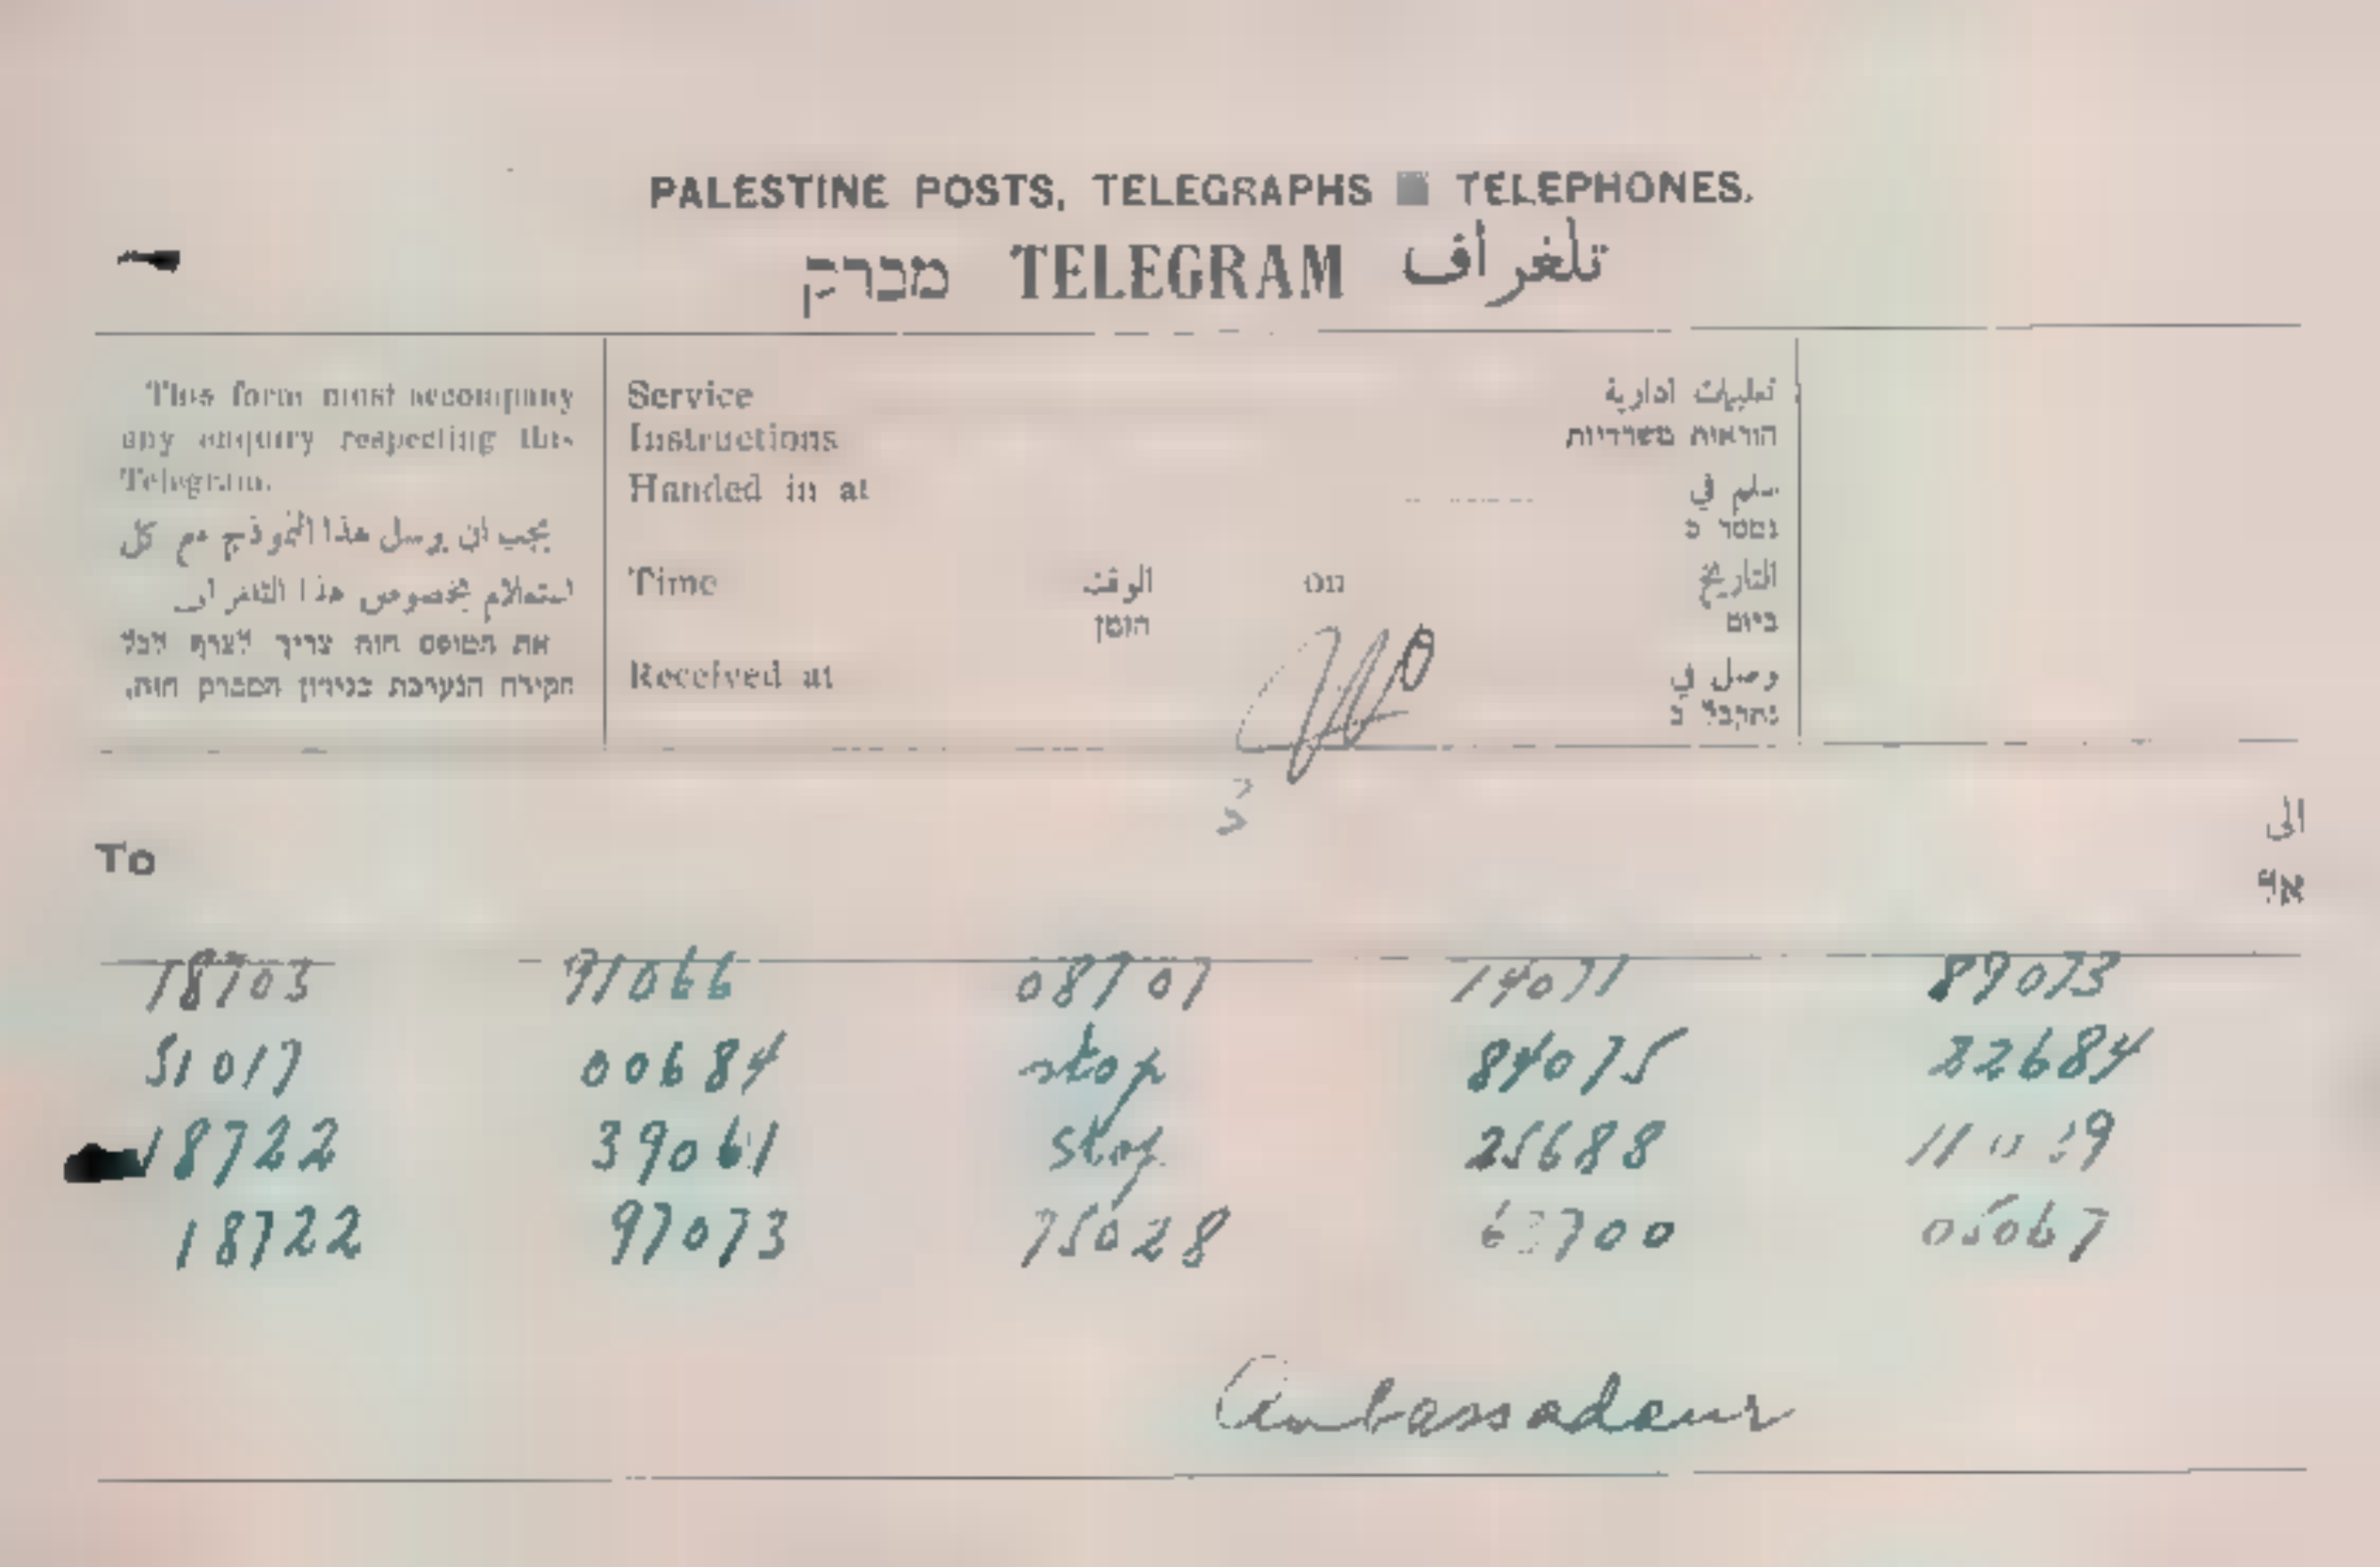 PALESTINE POSTS, TELEGRAPHS TELEPHONES.
מברק TELEGRAM تلغراف
This form must accompany
any enquiry respecting this
Telegram.
يجب ان يرسل هذا النموذج مع كل
استعلام بخصوص هذا التلغراف
את הטופס הזה צריך לצרף לכל
חקירה הנערכת בענין המברק הזה.
Service
Instructions
תعليمات ادارية
הוראות משרדיות
Handed in at
سلم في
נמסר ב
Time الوقت on التاريخ
הזמן ביום
Received at وصل في
נתקבל ב
To الى
אל
18703 91066 08707 14071 89073
51017 00684 stop 84075 22684
18722 39061 stop 25688
18722 97073 75028 05067
Ambassadeur